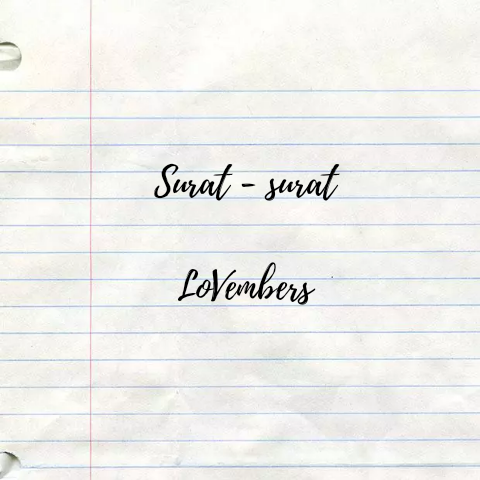 Surat - surat
LoVembers